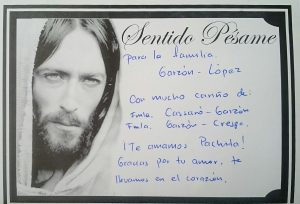 Sentido Pésame
para la familia.
Garzón - López
Con mucho cariño de:
Fmla. Cassaró - Garzón
Fmla. Garzón - Crespo.
¡Te amamos Pachita!
Gracias por tu amor, te
llevamos en el corazón.